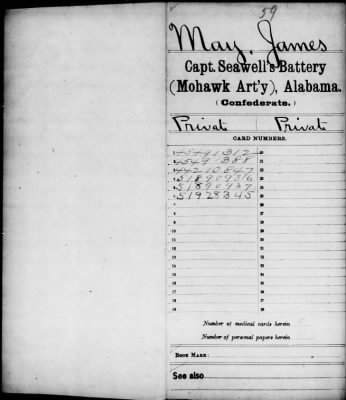 59
May, James
Capt. Seawell's Battery
(Mohawk Art'y), Alabama.
(Confederate.)
Privat Privat
CARD NUMBERS.
1 45491312 20
2 4549 1388 21
3 44210847 22
4 51890936 23
5 51890937 24
6 51928345 25
7 26
8 27
9 28
10 29
11 30
12 31
13 32
14 33
15 34
16 35
17 36
18 37
19 38
Number of medical cards herein
Number of personal papers herein
BOOK MARK:
See also